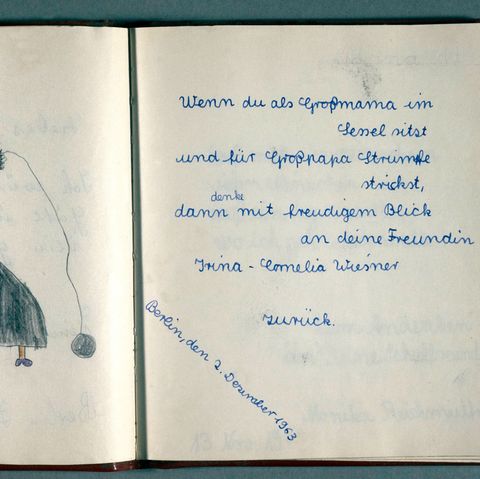 Wenn du als Großmama im
Sessel sitzt
und für Großpapa Strümpfe
strickst,
denke
dann mit freudigem Blick
an deine Freundin
Irina - Cornelia Wiesner
zurück.
Berlin, den 2. Dezember 1963